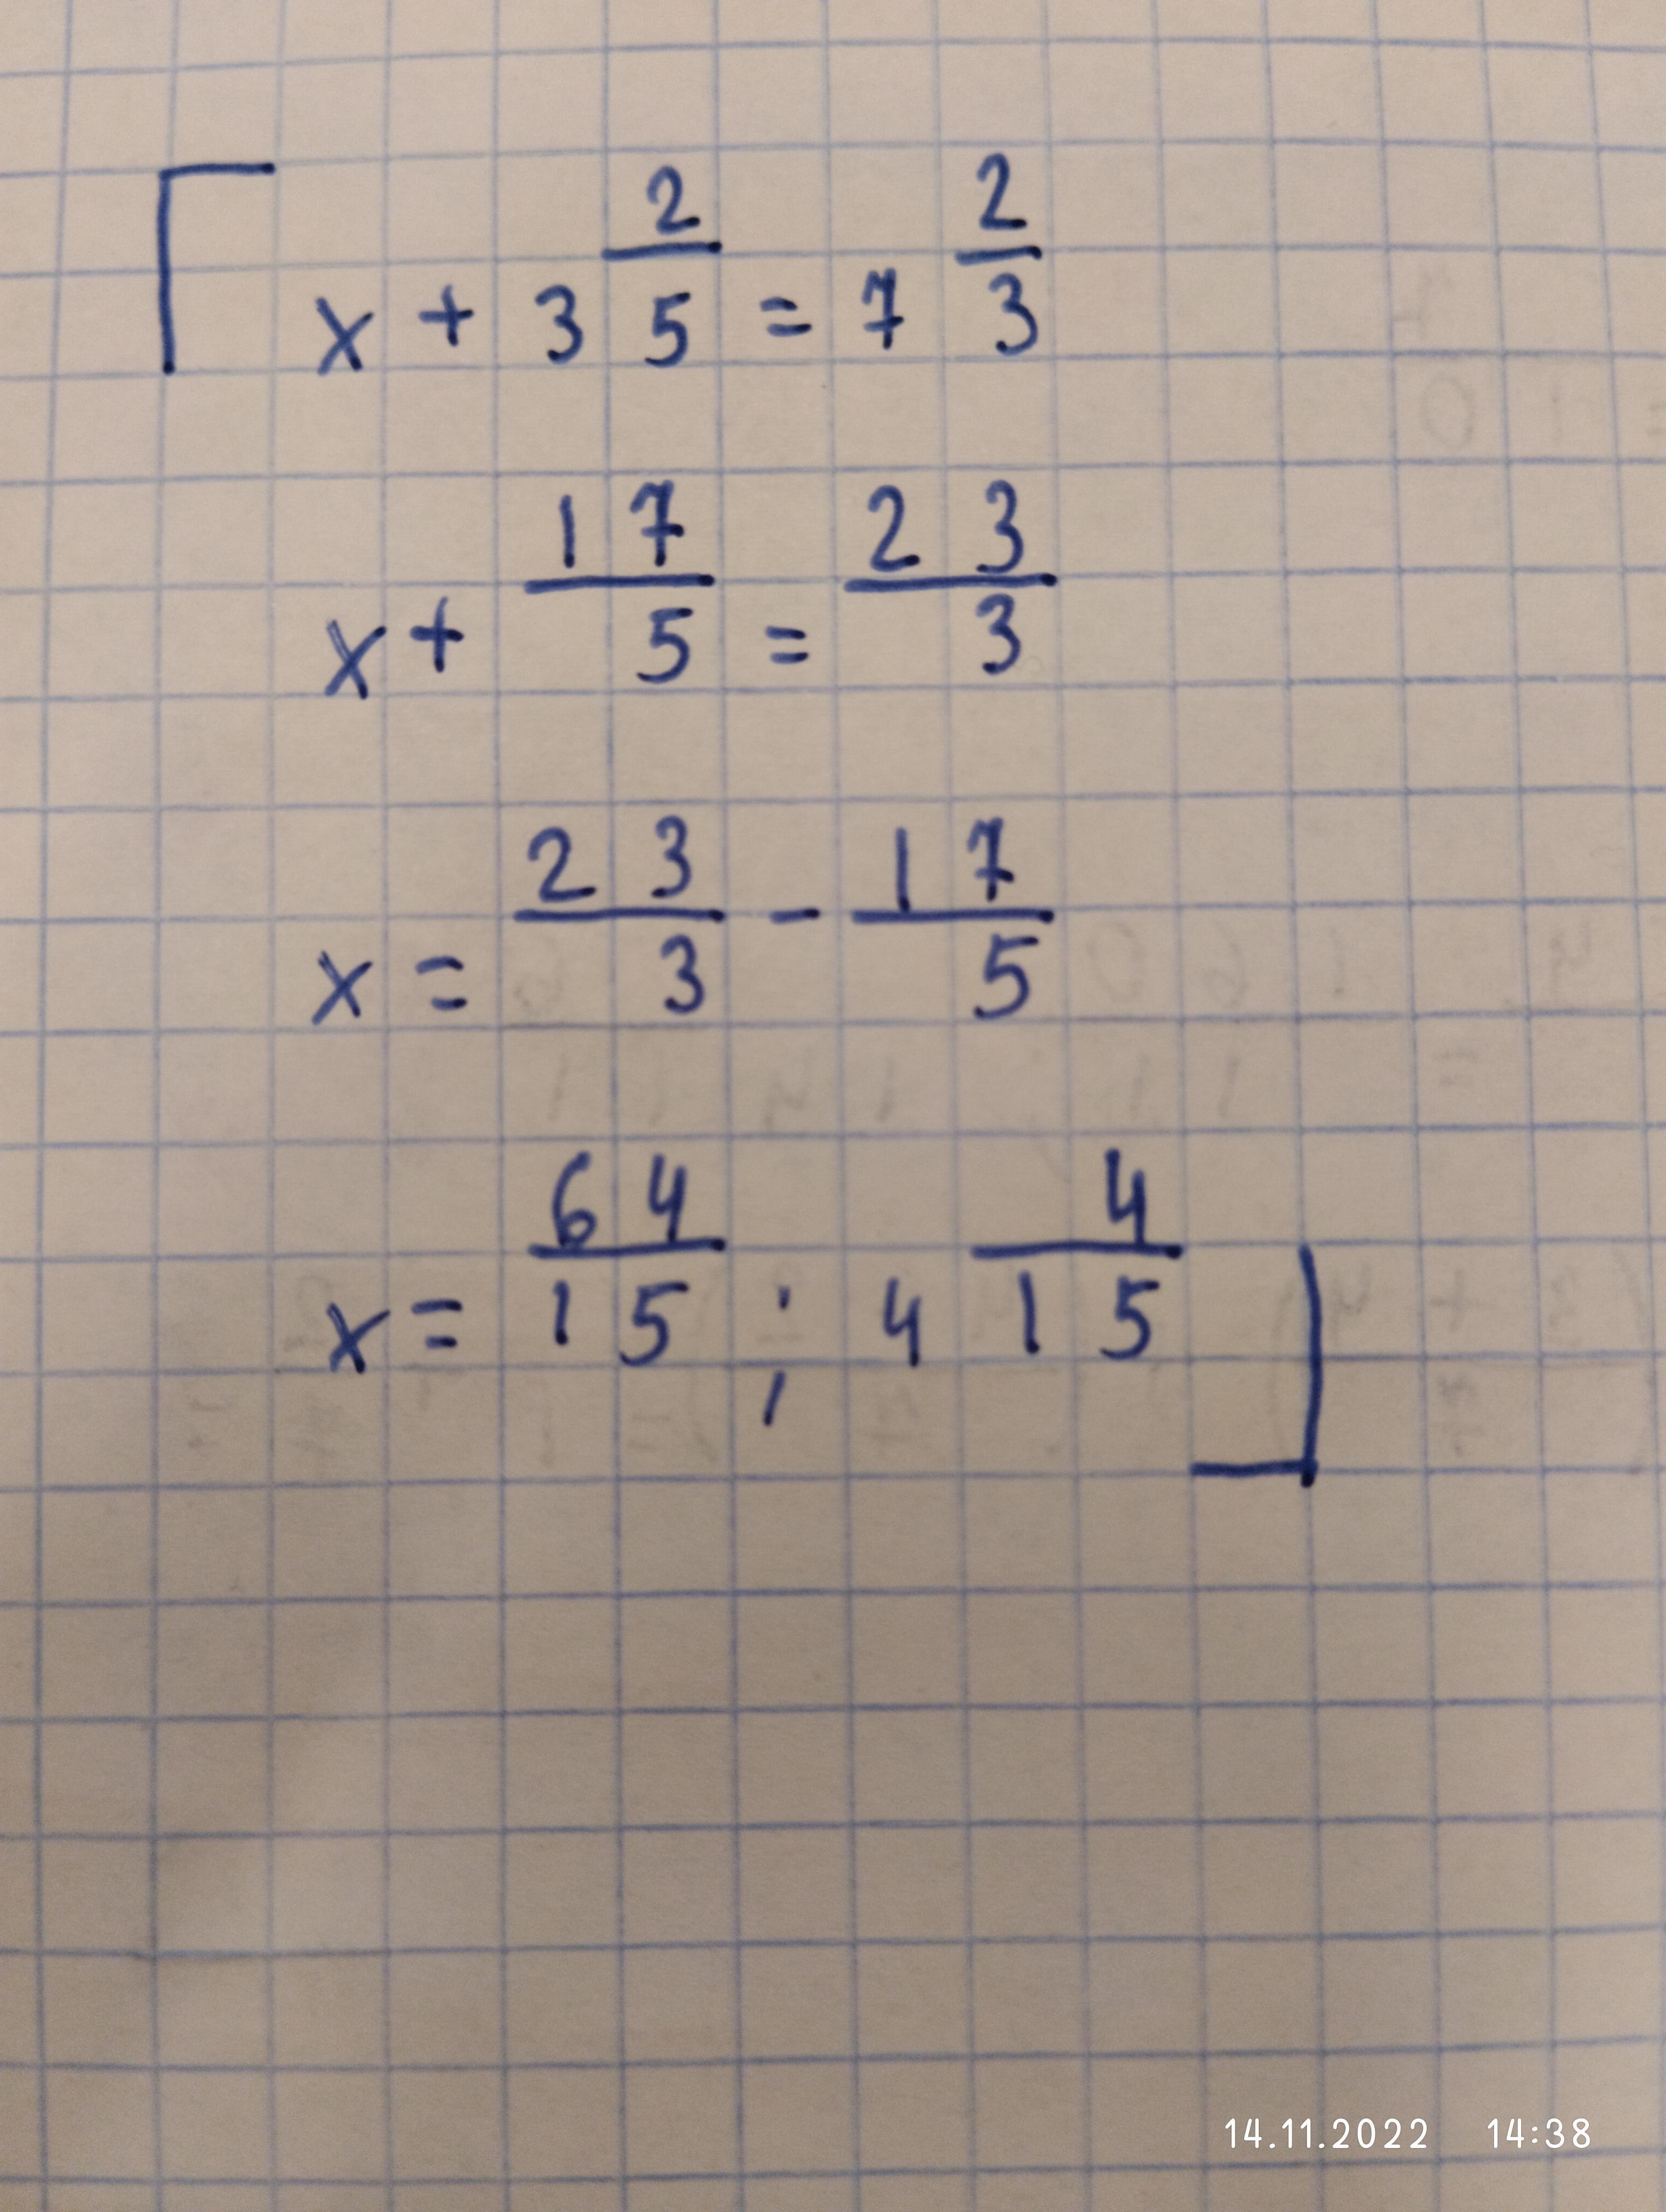 x + 3 2/5 = 7 2/3
x + 17/5 = 23/3
x = 23/3 - 17/5
x = 64/15 ; 4 4/15
14.11.2022 14:38